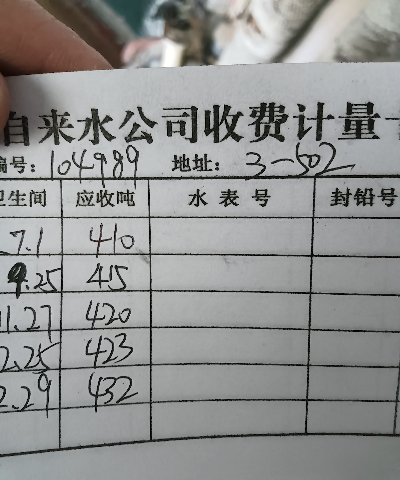 自来水公司收费计量
编号: 104989 地址: 3-502
卫生间 应收吨 水表号 封铅号
7.1 410
9.25 415
11.27 420
2.25 423
2.29 432